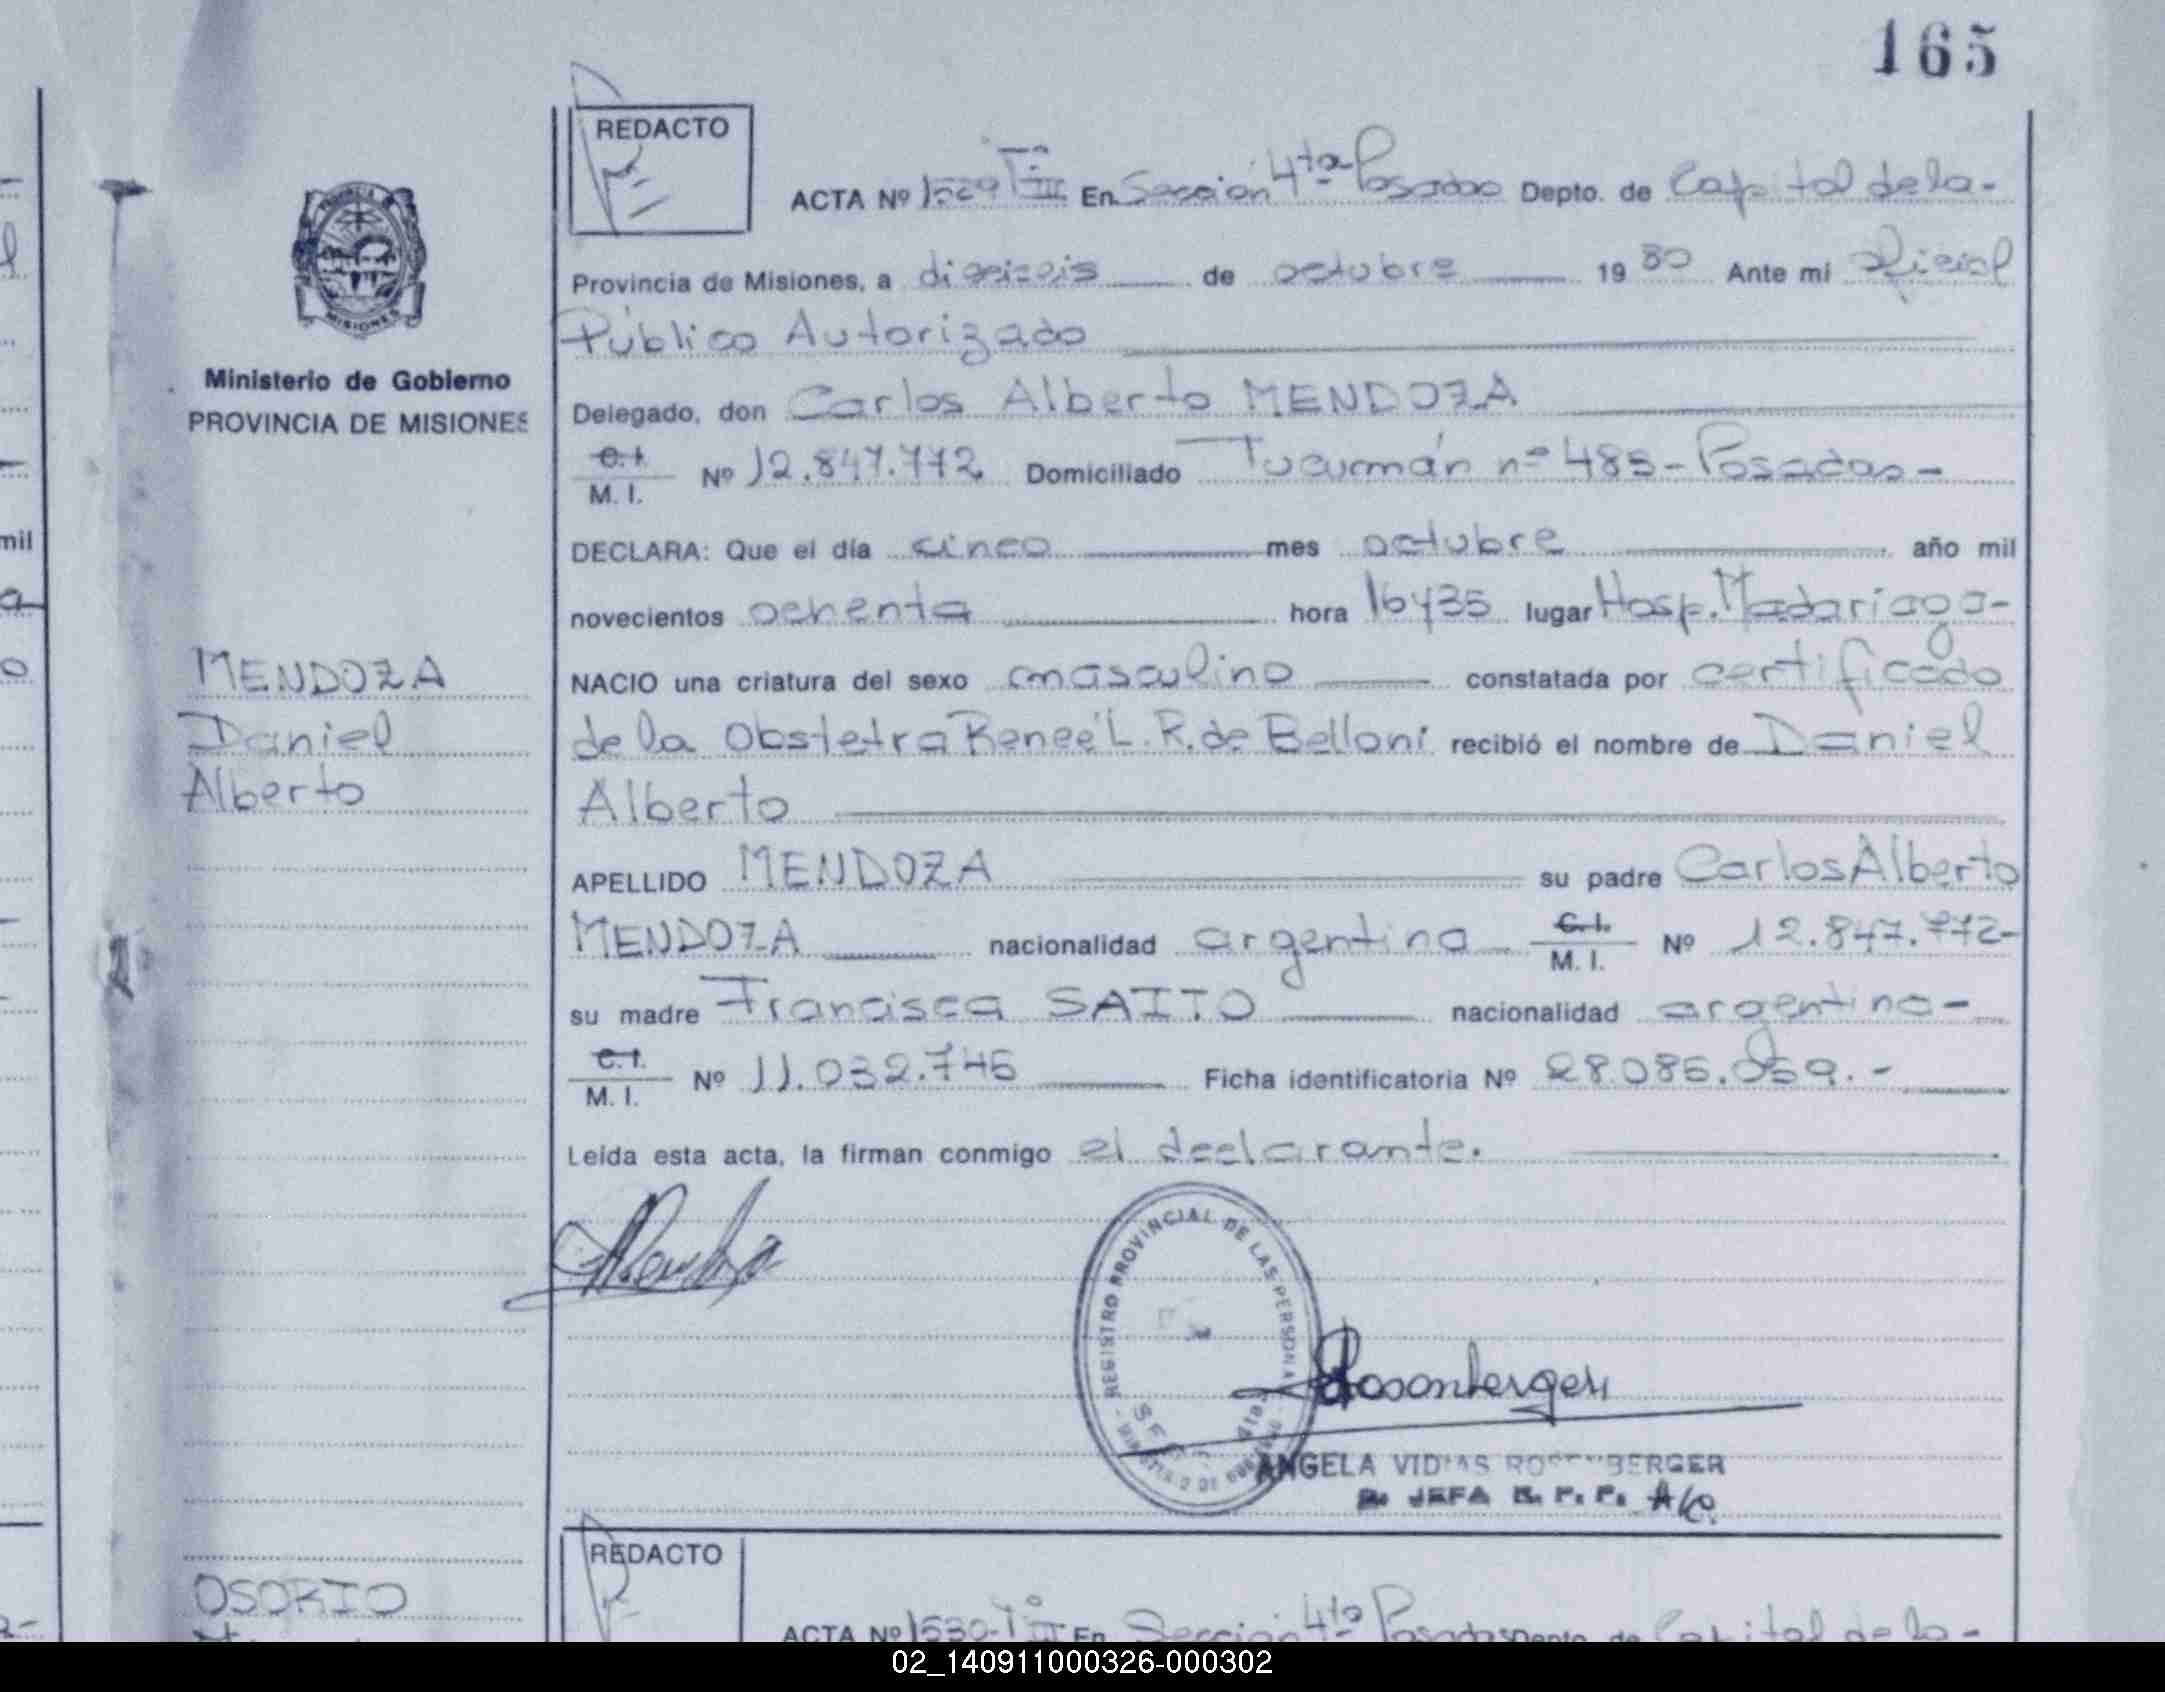 165
REDACTO
ACTA Nº 1529 Tº III En Sección 4ta Posadas Depto. de Capital de la-
Provincia de Misiones, a dieciseis de octubre 19 80 Ante mi Oficial
Público Autorizado
Ministerio de Gobierno
PROVINCIA DE MISIONES
Delegado, don Carlos Alberto MENDOZA
C. I.
M. I. Nº 12.847.772 Domiciliado Tucumán nº 485-Posadas-
DECLARA: Que el día cinco mes octubre año mil
novecientos ochenta hora 16y35 lugar Hosp. Madariaga-
NACIO una criatura del sexo masculino constatada por certificado
de la Obstetra Reneé L. R. de Belloni recibió el nombre de Daniel
Alberto
MENDOZA
Daniel
Alberto
APELLIDO MENDOZA su padre Carlos Alberto
MENDOZA nacionalidad argentina C. I. M. I. Nº 12.847.772-
su madre Francisca SAITO nacionalidad argentina-
C. I.
M. I. Nº 11.032.745 Ficha identificatoria Nº 28.085.059.-
Leída esta acta, la firman conmigo el declarante.
Mendoza
REGISTRO PROVINCIAL DE LAS PERSONAS
4ta
Rosenberger
ANGELA ROSENBERGER
JEFA R. P. P. A/C.
OSORIO
REDACTO
ACTA Nº 1530-Tº III En Sección 4ta Posadas Depto. de Capital de la-
mil
02_140911000326-000302